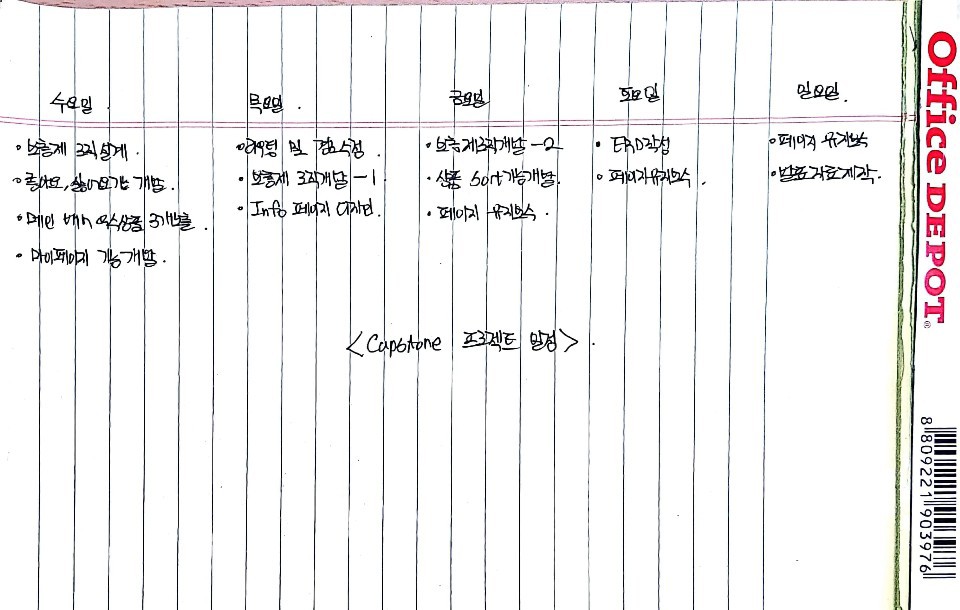 수요일.
• 보증제 로직 설계.
• 좋아요, 싫어요 기능 개발.
• 메인 배너 우수상품 3개 노출.
• 마이페이지 기능 개발.
목요일.
• 파일명 및 경로수정.
• 보증제 로직개발 - 1.
• Info 페이지 디자인.
금요일
• 보증제로직개발 - 2
• 상품 Sort 기능개발.
• 페이지 유지보수.
화요일
• ERD작성
• 페이지유지보수.
일요일.
• 페이지 유지보수
• 발표자료제작.
<Capstone 프로젝트 일정>.
Office DEPOT®
8 809221 903976